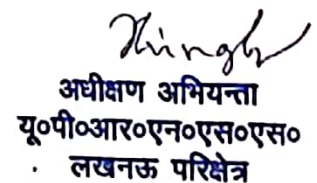 अधीक्षण अभियन्ता
यू०पी०आर०एन०एस०एस०
लखनऊ परिक्षेत्र